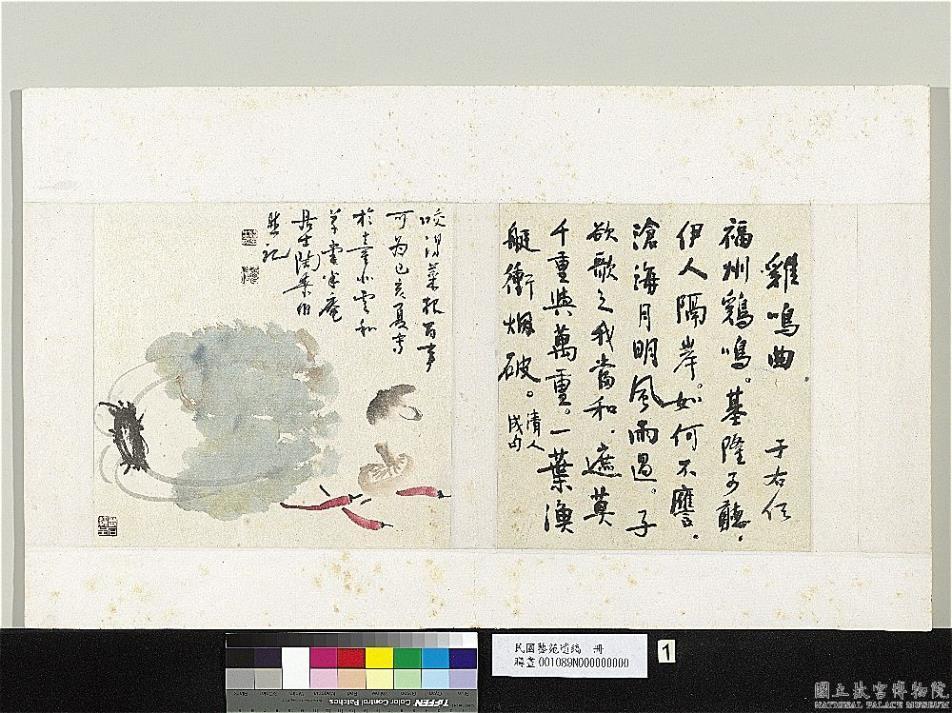 雞鳴曲. 于右任
福州鷄鳴。基隆可聽.
伊人隔岸。如何不譍.
滄海月明風雨過。子
欲歌之我當和.遮莫
千重與萬重。一葉漁
艇衝烟破。清人
成句
咬得菜根百事
可為己亥夏寫
於臺北雲和
草堂半庵
居士陶壽伯
並記
民國藝苑遺緒 冊
贈畫 001089N000000000
1
TIFFEN Color Control Patches
國立故宮博物院
NATIONAL PALACE MUSEUM